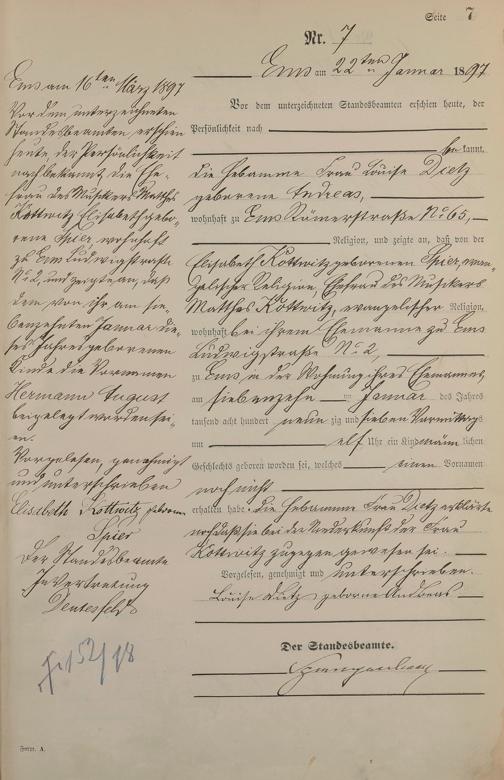 Seite 7
Nr. 7
Ems am 22ten Januar 1897
Vor dem unterzeichneten Standesbeamten erschien heute, der
Persönlichkeit nach
be kannt,
die Hebamme Frau Louise Dietz
geborene Andreas,
wohnhaft zu Ems Römerstraße No 65,
Religion, und zeigte an, daß von der
Elisabeth Kottwitz geborenen Spier, evan-
gelischer Religion, Ehefrau des Musikers
Matthes Kottwitz, evangelischer Religion,
wohnhaft bei ihrem Ehemanne zu Ems
Ludwigstraße No 2,
zu Ems in der Wohnung ihres Ehemannes,
am siebenzehn ten Januar des Jahres
tausend acht hundert neun zig und sieben Vormittags
um elf Uhr ein Kind männ lichen
Geschlechts geboren worden sei, welches einen Vornamen
noch nicht
erhalten habe. Die Hebamme Frau Dietz erklärte
noch daß sie bei der Niederkunft der Frau
Kottwitz zugegen gewesen sei.
Vorgelesen, genehmigt und unterschrieben.
Louise Dietz geborne Andreas
Der Standesbeamte.
Ems am 16ten März 1897
Vor dem unterzeichneten
Standesbeamten erschien
heute, der Persönlichkeit
nach bekannt, die Ehe-
frau des Musikers Matthes
Kottwitz Elisabeth gebo-
rene Spier, wohnhaft
zu Ems Ludwigstraße
No 2, und zeigte an, daß
dem von ihr am sie-
benzehnten Januar die-
ses Jahres geborenen
Kinde die Vornamen
Hermann August
beigelegt worden sei-
en.
Vorgelesen, genehmigt
und unterschrieben
Elisabeth Kottwitz, geborene
Spier
Der Standesbeamte
In Vertretung
Form. A.